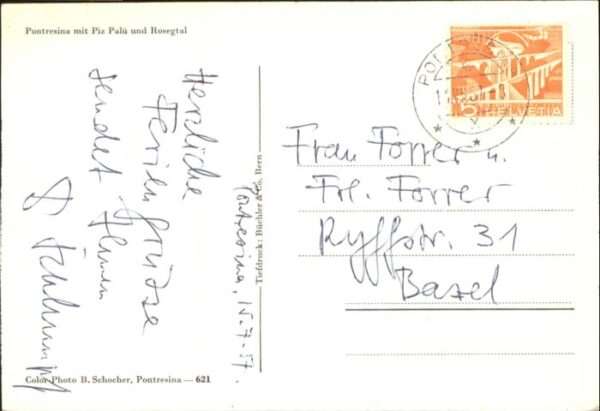 Pontresina mit Piz Palü und Rosegtal
Herzliche
Feriengrüsse
sendet Ihnen
Pontresina, 15-7-57.
Tiefdruck: Büchler & Co., Bern
Color Photo B. Schocher, Pontresina — 621
15 HELVETIA
Frau Forrer u.
Frl. Forrer
Ryffstr. 31
Basel